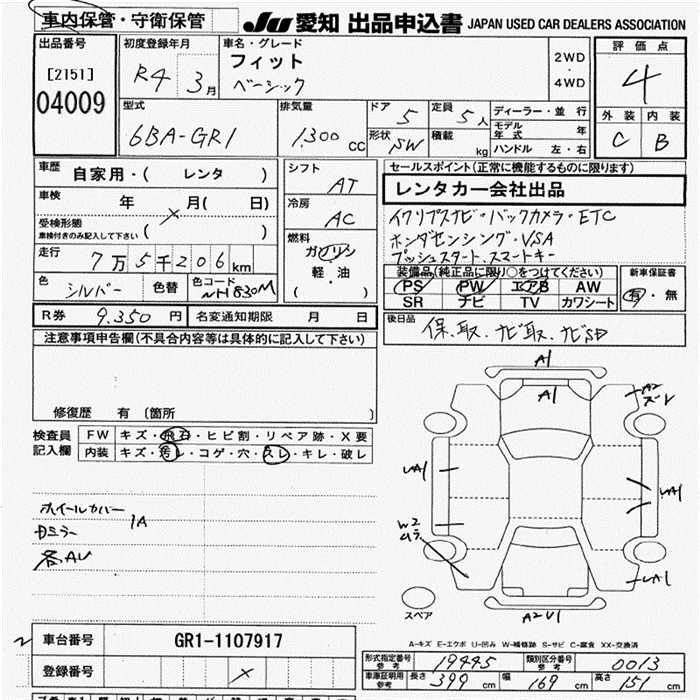 車内保管・守衛保管
JU 愛知 出品申込書 JAPAN USED CAR DEALERS ASSOCIATION
出品番号
[2151]
04009
初度登録年月
R4 3月
車名・グレード
フィット
ベーシック
2WD
・
4WD
評価点
4
外装 内装
C B
型式
6BA-GR1
排気量
1.300 CC
ドア 5
形状 5W
定員 5人
積載 kg
ディーラー・並行
モデル年式 年
ハンドル 左・右
車歴 自家用・( レンタ )
車検 年 ×月( 日)
受検形態
車検付きのみ記入して下さい ( )
走行 7万5千206km
色 シルバー 色替 色コード NH830M
シフト AT
冷房 AC
燃料
ガソリン
軽・油
( )
セールスポイント(正常に機能するものに限ります)
レンタカー会社出品
イクリプスナビ・バックカメラ・ETC
ホンダセンシング・VSA
プッシュスタート.スマートキー
装備品(純正品に限り○をつけてください)
PS PW エアB AW
SR ナビ TV カワシート
新車保証書
有・無
R券 9.350円 名変通知期限 月 日
後日品 保.取.ナビ取.ナビSD
注意事項申告欄(不具合内容等は具体的に記入して下さい)
修復歴 有 〔箇所 〕
検査員記入欄
FW キズ・飛石・ヒビ割・リペア跡・X要
内装 キズ・汚レ・コゲ・穴・スレ・キレ・破レ
ホイールカバー
Dミラー 1A
各AU
A1
A1
A2
ズレ
UA1
UA1
W2
ムラ
UA1
スペア
A2U1
A-キズ E-エクボ U-凹み W-補修跡 S-サビ C-腐食 XX-交換済
車台番号 GR1-1107917
登録番号 ×
形式指定番号参考 19445 類別区分番号参考 0013
車庫証明用参考 長さ 399cm 幅 169cm 高さ 151cm